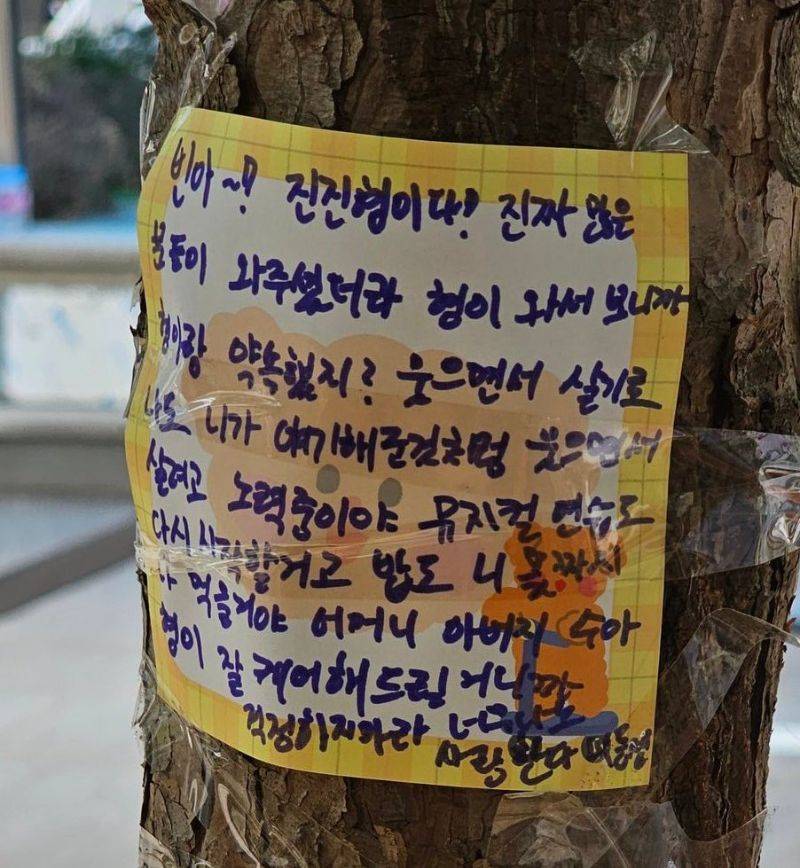 빈아~! 진진형이다! 진짜 많은
분들이 와주셨더라 형이 와서 보니까
형이랑 약속했지? 웃으면서 살기로
나도 니가 얘기해준것처럼 웃으면서
살려고 노력중이야 뮤지컬 연습도
다시 시작할거고 밥도 니 몫까지
다 먹을거야 어머니 아버지 수아
형이 잘 케어해드릴거니깐
걱정하지마라
사랑한다